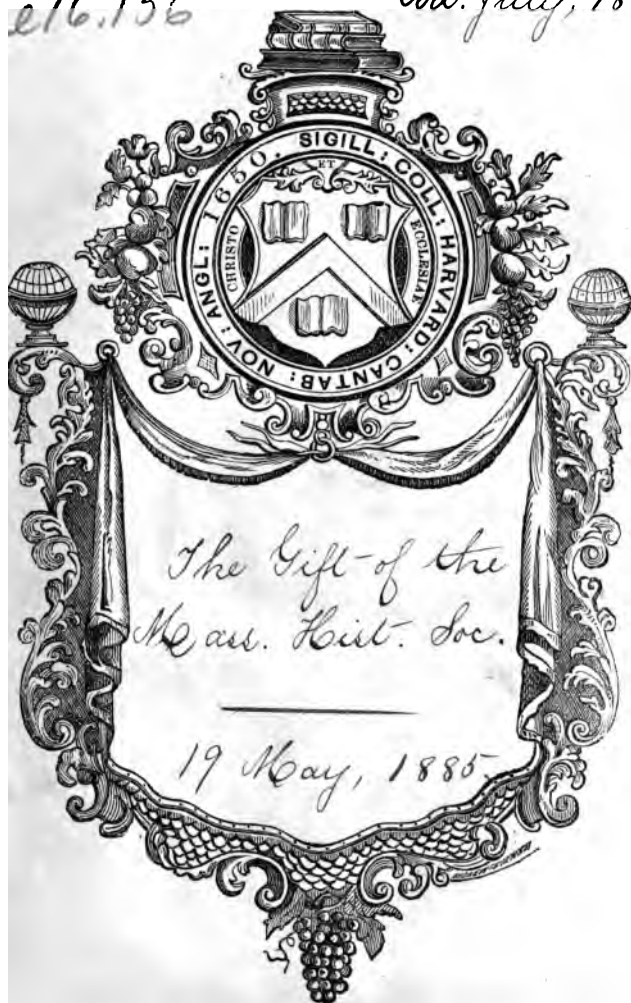 July, 18
SIGILL: COLL: HARVARD: CANTAB: NOV: ANGL: 1650.
CHRISTO
ET
ECCLESIAE
The Gift of the
Mass. Hist. Soc.
19 May, 1885.